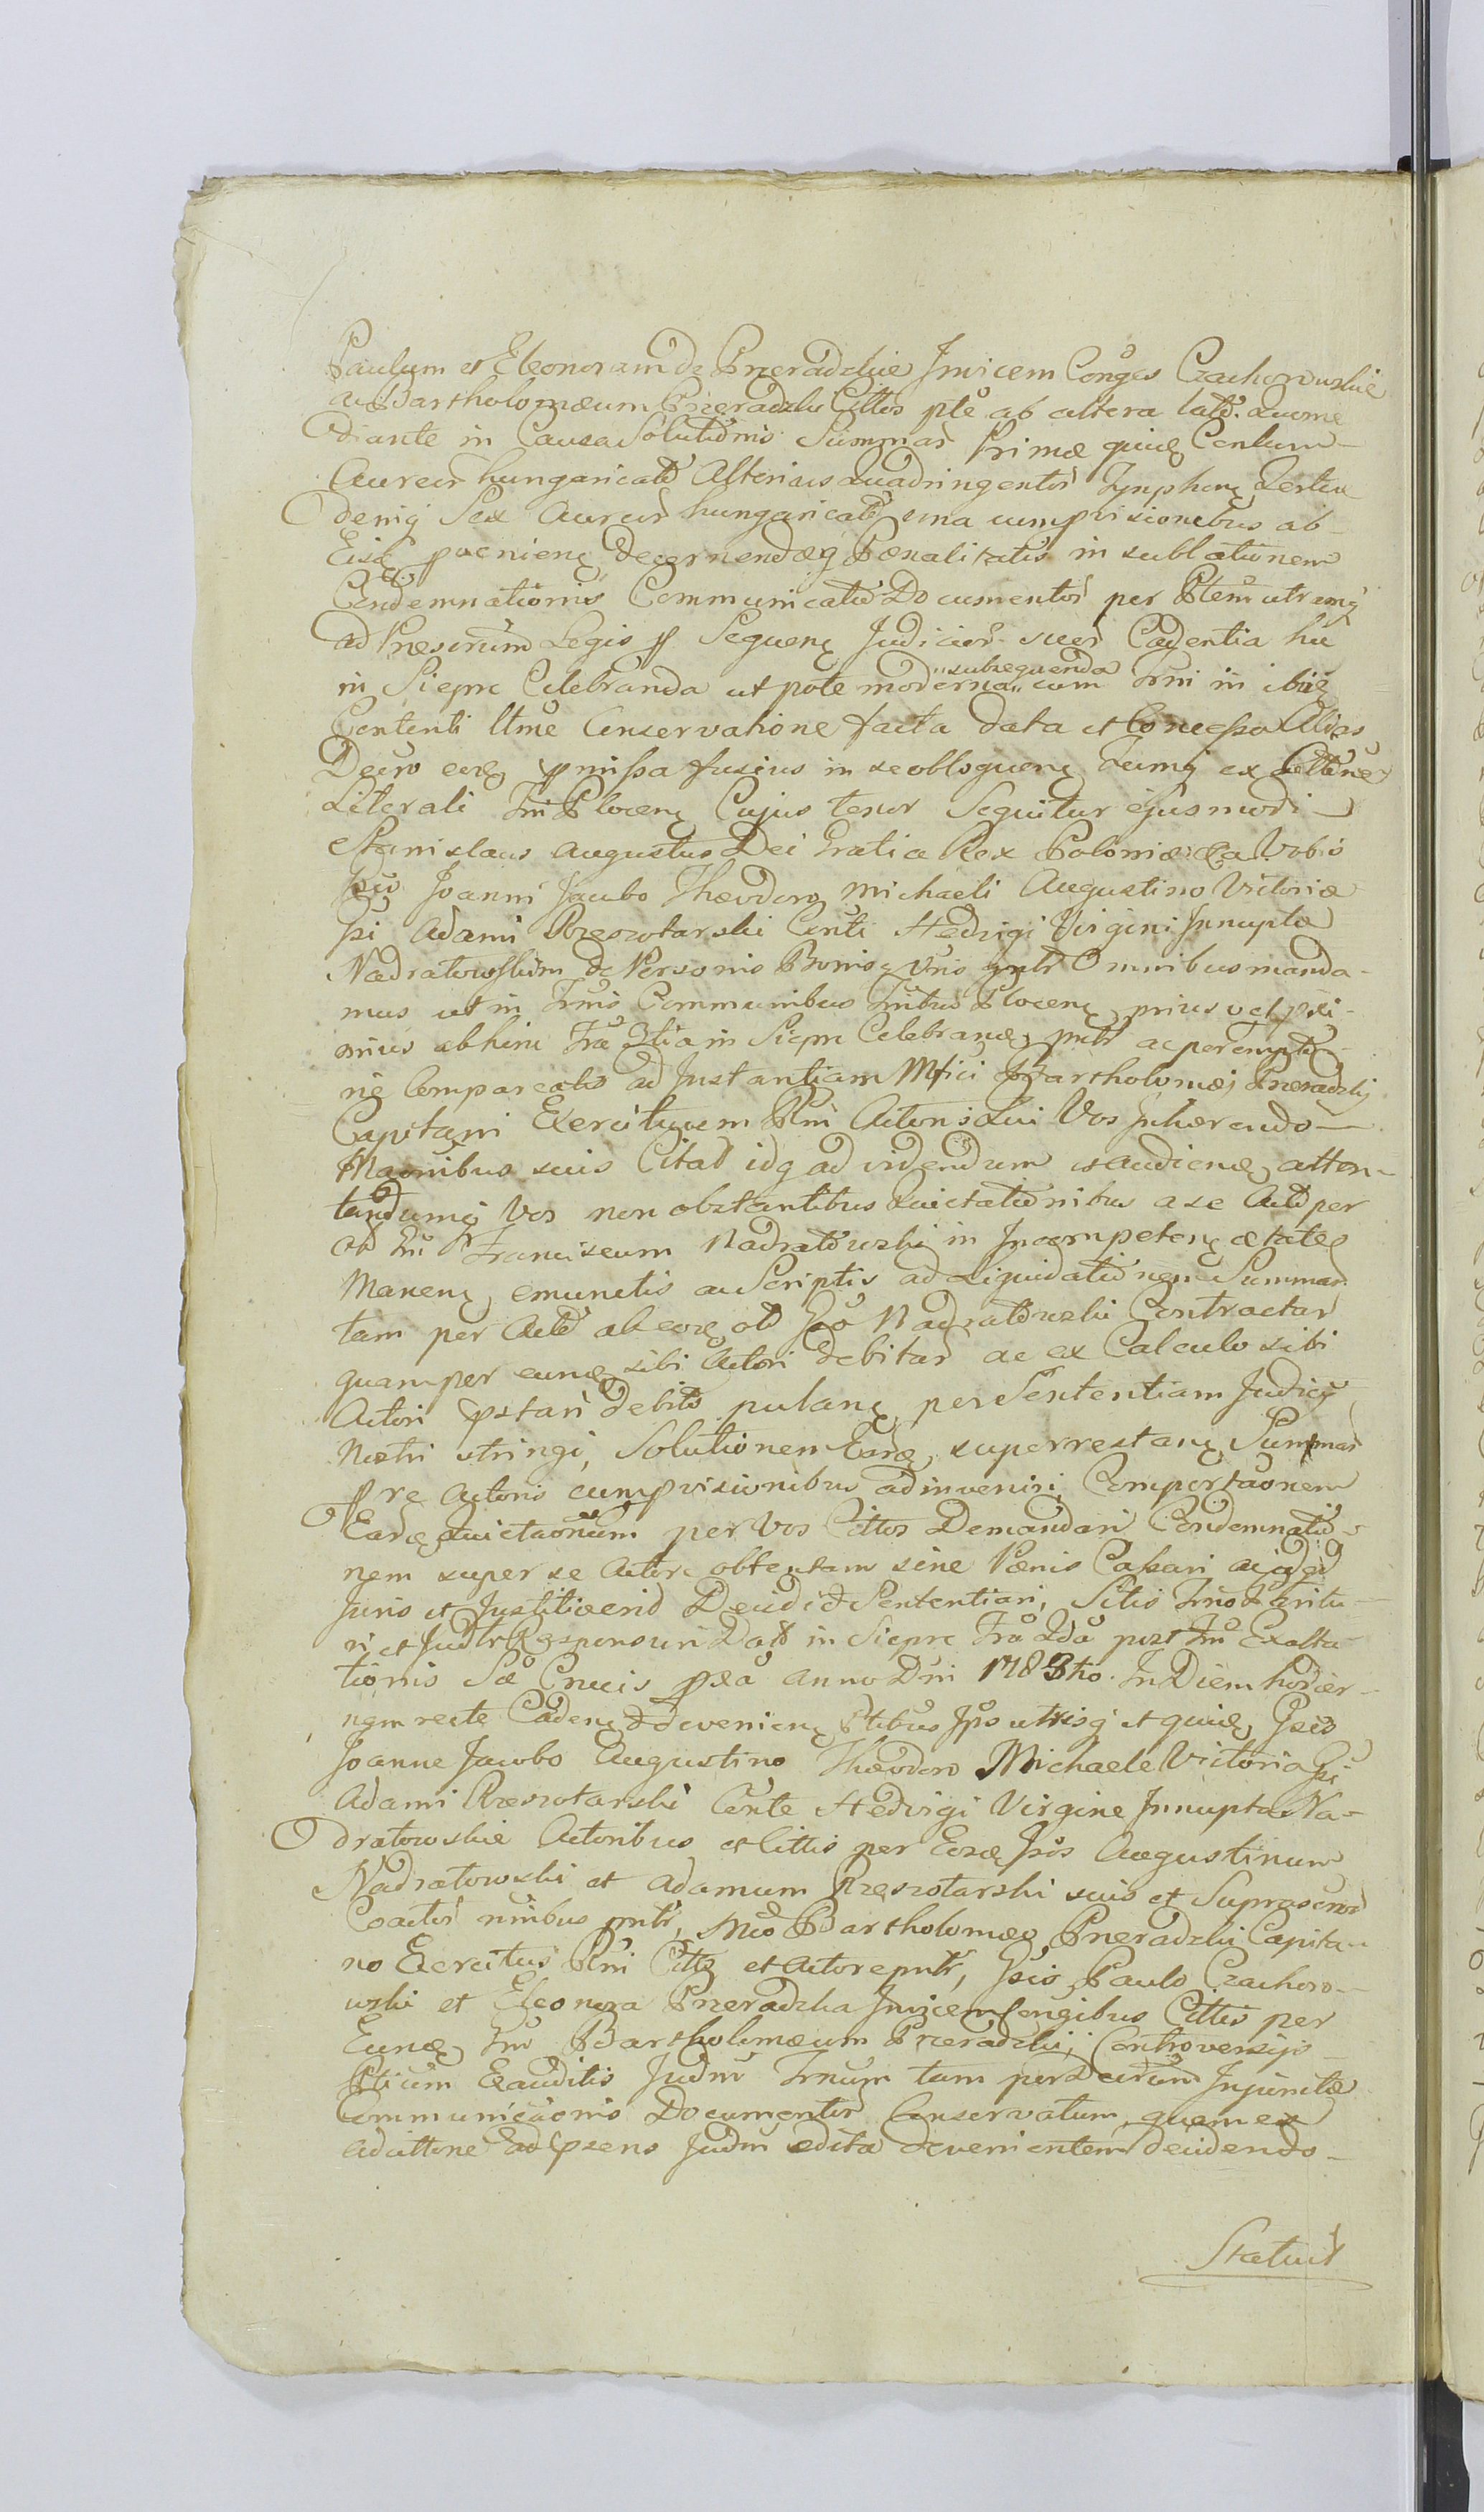 Paulum et Eleonoram de Przeradzkie Invicem Conges Czachorowskie
ac Bartholomæum Przeradzki Cittos pte ab altera late. Quome
diante in Causa Solutionis Summar Primæ quinq Centum
Aureor hungaricalē Alterius Quadringentor Tynphonq Tertiæ
deniq Sex Aureor hungaricalē una cum pvisionibus ab
Eisq pvenienq decernendæq Pœnalitatis in sublationem
Condemnationis Communicatio Documentor per Ptem utramq
ad Præscrum Legis p Sequenq Judicior suor Cadentia hic
in Siepre Celebranda utpote moderna cum "subsequenda" Trni in ibiq
Contenti ltme Conservatione facta data et Concessa Alias
Decro eoq pmissa fusius in se obloquenq Tumq ex Citttne
Literali Tri Plocenq Cujus tenor Sequitur ejusmodi
Stanislaus Augustus Dei Gratia Rex Poloniæ &a Vobis
Gsis Joanni Jacobo Theodoro Michaeli Augustino Victoriæ
Gsi Adami Rzeszotarski Conti Hedvigi Virgini Innuptæ
Nadratowskim de Personis Bonisq Vris gntr Omnibus manda-
mus ut in Trmis Communibus Tribus Plocenq prius vel pxi-
mius abhinc Fra 3tia in Siepre Celebranq, pntr ac perempto-
rie Compareatis ad Instantiam Mfici Bartholomæj Przeradzkij
Capitani Exercituum Rni Actoris Qui Vos Inhærendo
Maonibus suis Citat idq ad videndum et audienq, atten-
tandumq Vos non obstantibus Quietationibus a se Acto per
ol Gsi Franciscum Nadratowski in Incompetenq ætate
Manenq, emunctis ac Scriptis ad Liquidationem Summar
tam per Acto ab eoq ol Gso Nadratowski Contractar
quam per eunq sibi Actori debitar ac ex Calculo sibi
Actori pstari debito putanq, per Sententiam Judicij
Nostri stringi, Solutionem Earq, superrestanq Summar
p re Actoris cum pvisionibus adinveniri, Comportaonem
Earq Quietaonum per Vos Cittos Demandari Condemnatio-
nem super se Actore obtentam sine Pœnis Cassari ac id qd
Juris et Justitiæ erit Decidi et Sententiari, Sitis Trno Paritu-
ri et Judlr Responsuri Dat in Siepre Fra 2da post Fm Exalta-
tionis Sæ Crucis pxa Anno Dni 1783tio. In Diem hodier-
nam recte Cadenq & devenienq Ptibus Ipsis utrisq et quinq Gsis
Joanne Jacobo Augustino Theodoro Michaele Victoria Gsi
Adami Rzeszotarski Conte Hedvigi Virgine Innupta Na-
dratowskie Actoribus et Cittis per Eosq Gsos Augustinum
Nadratowski et Adamum Rzeszotarski suis et Suprascror
Coactor nnibus pntr, Mco Bartholomæo Przeradzki Capita-
no Exercitus Rni Citto et Actore pntr, Gsis Paulo Czachoro-
wski et Eleonora Przeradzka Invicem Congibus Cittis per
Eunq, Gsu Bartholomæum Przeradzki, Controversijs
Ptium Exauditis Judm Trnum tam per Decrum Injunctæ
Communicaonis Documentor Conservatum, quam ex
Adcittone ad psens Judm edita devenientem decidendo
Statuit